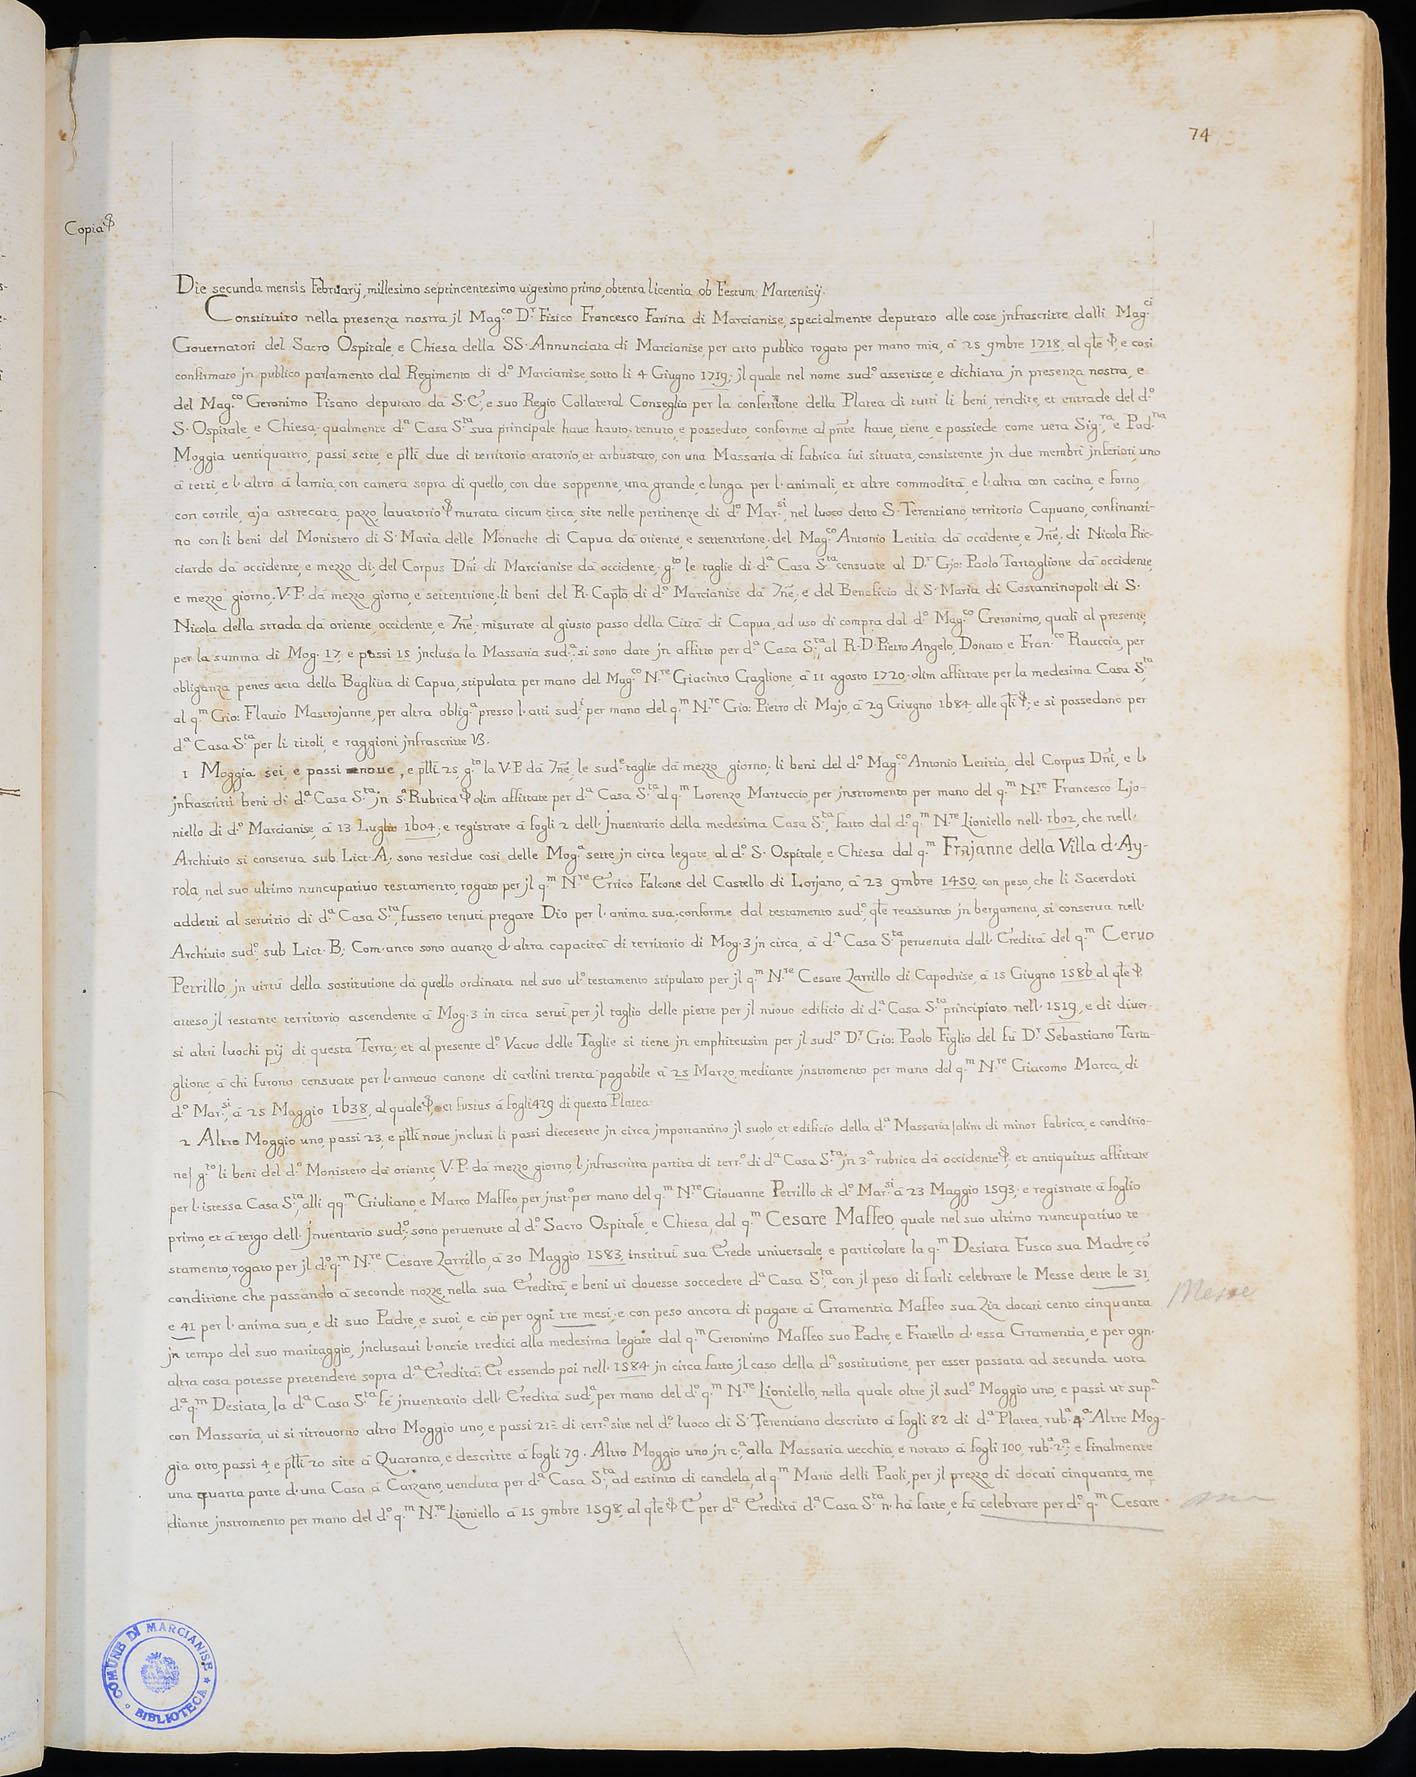 74
Copia
Die secunda mensis Februarij, millesimo septincentesimo uigesimo primo, obtenta licentia ob Festum Martenisij.
Constituito nella presenza nostra jl Mag.co D.r Fisico Francesco Farina di Marcianise, specialmente deputato alle cose jnfrascritte dalli Mag.ci
Gouernatori del Sacro Ospitale, e Chiesa della SS. Annunciata di Marcianise, per atto publico rogato per mano mia, à 25 9mbre 1718, al qle &, e così
confirmato jn publico parlamento dal Regimento di d.o Marcianise, sotto li 4 Giugno 1719; jl quale nel nome sud.o asserisce, e dichiara jn presenza nostra, e
del Mag.co Geronimo Pisano deputato da S. E., e suo Regio Collateral Conseglio per la confettione della Platea di tutti li beni, rendite, et entrade del d.o
S. Ospitale, e Chiesa, qualmente d.a Casa S.ta sua principale haue hauto, tenuto, e posseduto, conforme al pnte haue, tiene, e possiede come uera Sig.ra, e Pad.na
Moggia uentiquattro, passi sette, e plli due di territorio aratorio, et arbustato, con una Massaria di fabrica iui situata, consistente jn due membri jnferiori, uno
à tetti, e l'altro à lamia, con camera sopra di quello, con due soppenne, una grande, e lunga per l'animali, et altre commodità, e l'altra con cocina, e forno,
con cortile, aja astrecata, pozzo, lauatorio & murata circum circa, site nelle pertinenze di d.o Mar.si, nel luoco detto S. Terentiano, territorio Capuano, confinanti-
no con li beni del Monistero di S. Maria delle Monache di Capua dà oriente, e settentrione; del Mag.co Antonio Letitia dà occidente, e 7ne; di Nicola Ric-
ciardo dà occidente, e mezzo dì; del Corpus Dni di Marcianise dà occidente; g.to le taglie di d.a Casa S.ta censuate al D.r Gjo: Paolo Tartaglione dà occidente,
e mezzo giorno; V.P. dà mezzo giorno, e settentrione; li beni del R. Caplo di d.o Marcianise dà 7ne; e del Beneficio di S. Maria di Costantinopoli di S.
Nicola della strada dà oriente, occidente, e 7ne; misurate al giusto passo della Città di Capua, ad uso di compra dal d.o Mag.co Geronimo, quali al presente,
per la summa di Mog. 17, e passi 15 jnclusa la Massaria sud.a, si sono date jn affitto per d.a Casa S.ta al R. D. Pietro Angelo, Donato e Fran.co Rauccia, per
obliganza penes acta della Bagliua di Capua, stipulata per mano del Mag.co N.re Giacinto Gaglione, à 11 agosto 1720; olim affittate per la medesima Casa S.ta
al q.m Gio: Flauio Mastrojanne, per altra oblig.a presso l'atti sud.i per mano del q.m N.re Gio: Pietro di Majo, à 29 Giugno 1684, alle qli &; e si possedono per
d.a Casa S.ta per li titoli, e raggioni jnfrascritte
1 Moggia sei, e passi noue, e plli 25, g.to la V.P. dà 7ne, le sud.e taglie dà mezzo giorno; li beni del d.o Mag.co Antonio Letitia, del Corpus Dni, e l'
jnfrascritti beni di d.a Casa S.ta jn s.a Rubrica & olim affittate per d.a Casa S.ta al q.m Lorenzo Martuccio, per jnstromento per mano del q.m N.re Francesco Ljo-
niello di d.o Marcianise, à 13 Luglio 1604; e registrate à fogli 2 dell'Jnuentario della medesima Casa S.ta, fatto dal d.o q.m N.re Lioniello nell'1602, che nell'
Archiuio si conserua sub Litt. A, sono residue così delle Mog.a sette, jn circa legate al d.o S. Ospitale, e Chiesa dal q.m Frajanne della Villa d'Ay-
rola, nel suo ultimo nuncupatiuo testamento, rogato per jl q.m N.re Errico Falcone del Castello di Lorjano, à 23 9mbre 1450, con peso, che li Sacerdoti
addetti al seruitio di d.a Casa S.ta fussero tenuti pregare Dio per l'anima sua, conforme dal testamento sud.o, qle reassunto jn bergamena, si conserua nell'
Archiuio sud.o, sub Litt. B; Com'anco sono auanzo d'altra capacità di territorio di Mog. 3 jn circa, à d.a Casa S.ta peruenuta dall'Eredità del q.m Ceruo
Petrillo, jn uirtù della sostitutione dà quello ordinata nel suo ul.o testamento stipulato per jl q.m N.re Cesare Zarrillo di Capodrise, à 15 Giugno 1586 al qle &
atteso jl restante territorio ascendente à Mog. 3 in circa seruì per jl taglio delle pietre per jl nuouo edificio di d.a Casa S.ta principiato nell'1519, e di diuer-
si altri luochi pij di questa Terra; et al presente d.o Vacuo delle Taglie si tiene jn emphiteusim per jl sud.o D.r Gio: Paolo Figlio del fù D.r Sebastiano Tarta-
glione, à chi furono censuate per l'annouo canone di carlini trenta pagabile à 25 Marzo, mediante jnstromento per mano del q.m N.re Giacomo Marca, di
d.o Mar.si, à 25 Maggio 1638, al quale &, et fusius à fogli 429 di questa Platea.
2 Altro Moggio uno, passi 23, e plli noue jnclusi li passi diecesette jn circa jmportantino jl suolo, et edificio della d.a Massaria / olim di minor fabrica, e conditio-
ne / g.to li beni del d.o Monistero dà oriente, V.P. dà mezzo giorno, l'jnfrascritta partita di terr.o di d.a Casa S.ta jn 3.a rubrica dà occidente &, et antiquitus affittate
per l'istessa Casa S.ta, alli qq.m Giuliano, e Marco Maffeo, per jnst.o per mano del q.m N.re Giouanne Petrillo di d.o Mar.si à 23 Maggio 1593; e registrate à foglio
primo, et à tergo dell'Jnuentario sud.o, sono peruenute al d.o Sacro Ospitale, e Chiesa, dal q.m Cesare Maffeo, quale nel suo ultimo nuncupatiuo te-
stamento, rogato per jl d.o q.m N.re Cesare Zarrillo, à 30 Maggio 1583, instituì sua Erede uniuersale, e particolare la q.m Desiata Fusco sua Madre, cò
conditione che passando à seconde nozze, nella sua Eredità, e beni ui douesse soccedere d.a Casa S.ta, con jl peso di farli celebrare le Messe dette le 31,
Messe
e 41 per l'anima sua, e di suo Padre, e suoi, e ciò per ogni tre mesi; e con peso ancora di pagare à Gramentia Maffeo sua Zia docati cento cinquanta
jn tempo del suo maritaggio, jnclusaui l'oncie tredici alla medesima legate dal q.m Geronimo Maffeo suo Padre, e Fratello d'essa Gramentia, e per ogn'
altra cosa potesse pretendere sopra d.a Eredità: Et essendo poi nell'1584 jn circa fatto jl caso della d.a sostitutione, per esser passata ad secunda uota
d.a q.m Desiata, la d.a Casa S.ta fè jnuentario dell'Eredità sud.a, per mano del d.o q.m N.re Lioniello, nella quale oltre jl sud.o Moggio uno, e passi ut sup.a
con Massaria, ui si ritrouorno altro Moggio uno, e passi 21 di terr.o site nel d.o luoco di S. Terentiano descritto à fogli 82 di d.a Platea, rub.a 4.a Altre Mog-
gia otto, passi 4, e plli 20 site à Quaranta, e descritte à fogli 79. Altro Moggio uno jn c.a alla Massaria uecchia, e notato à fogli 100, rub.a 2.a; e finalmente
una quarta parte d'una Casa à Carzano, uenduta per d.a Casa S.ta, ad estinto di candela, al q.m Mario delli Paoli, per jl prezzo di docati cinquanta, me
diante jnstromento per mano del d.o q.m N.re Lioniello à 15 9mbre 1598, al qle & E per d.a Eredità d.a Casa S.ta n'hà fatte, e fà celebrare per d.o q.m Cesare
COMUNE DI MARCIANISE
BIBLIOTECA